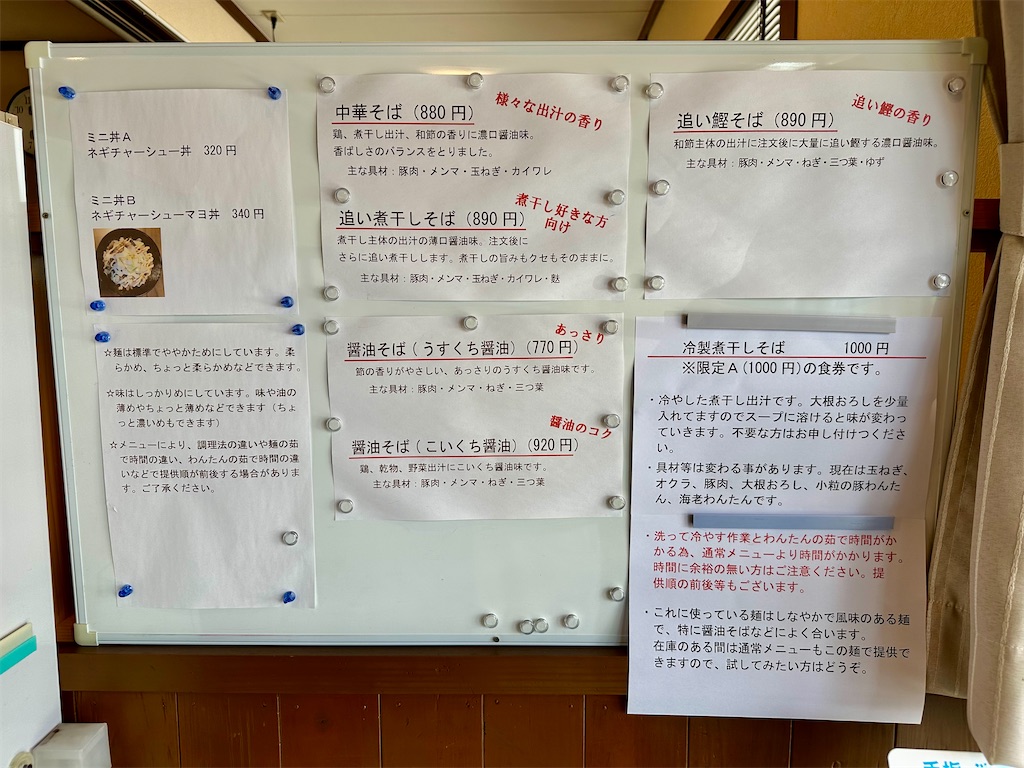 ミニ丼A
ネギチャーシュー丼 320円
ミニ丼B
ネギチャーシューマヨ丼 340円
☆麺は標準でややかためにしています。柔
らかめ、ちょっと柔らかめなどできます。
☆味はしっかりめにしています。味や油の
薄めやちょっと薄めなどできます(ちょ
っと濃いめもできます)
☆メニューにより、調理法の違いや麺の茹
で時間の違い、わんたんの茹で時間の違
いなどで提供順が前後する場合がありま
す。ご了承ください。
中華そば(880円)
様々な出汁の香り
鶏、煮干し出汁、和節の香りに濃口醤油味。
香ばしさのバランスをとりました。
主な具材:豚肉・メンマ・玉ねぎ・カイワレ
追い煮干しそば(890円)
煮干し好きな方
向け
煮干し主体の出汁の薄口醤油味。注文後に
さらに追い煮干しします。煮干しの旨みもクセもそのままに。
主な具材:豚肉・メンマ・玉ねぎ・カイワレ・麩
醤油そば(うすくち醤油)(770円)
あっさり
節の香りがやさしい、あっさりのうすくち醤油味です。
主な具材:豚肉・メンマ・ねぎ・三つ葉
醤油そば(こいくち醤油)(920円)
醤油のコク
鶏、乾物、野菜出汁にこいくち醤油味です。
主な具材:豚肉・メンマ・ねぎ・三つ葉
追い鰹そば(890円)
追い鰹の香り
和節主体の出汁に注文後に大量に追い鰹する濃口醤油味。
主な具材:豚肉・メンマ・ねぎ・三つ葉・ゆず
冷製煮干しそば 1000円
※限定A(1000円)の食券です。
・冷やした煮干し出汁です。大根おろしを少量
入れてますのでスープに溶けると味が変わっ
ていきます。不要な方はお申し付けくださ
い。
・具材等は変わる事があります。現在は玉ねぎ、
オクラ、豚肉、大根おろし、小粒の豚わんた
ん、海老わんたんです。
・洗って冷やす作業とわんたんの茹で時間がか
かる為、通常メニューより時間がかかります。
時間に余裕の無い方はご注意ください。提
供順の前後等もございます。
・これに使っている麺はしなやかで風味のある麺
で、特に醤油そばなどによく合います。
在庫のある間は通常メニューもこの麺で提供で
きますので、試してみたい方はどうぞ。